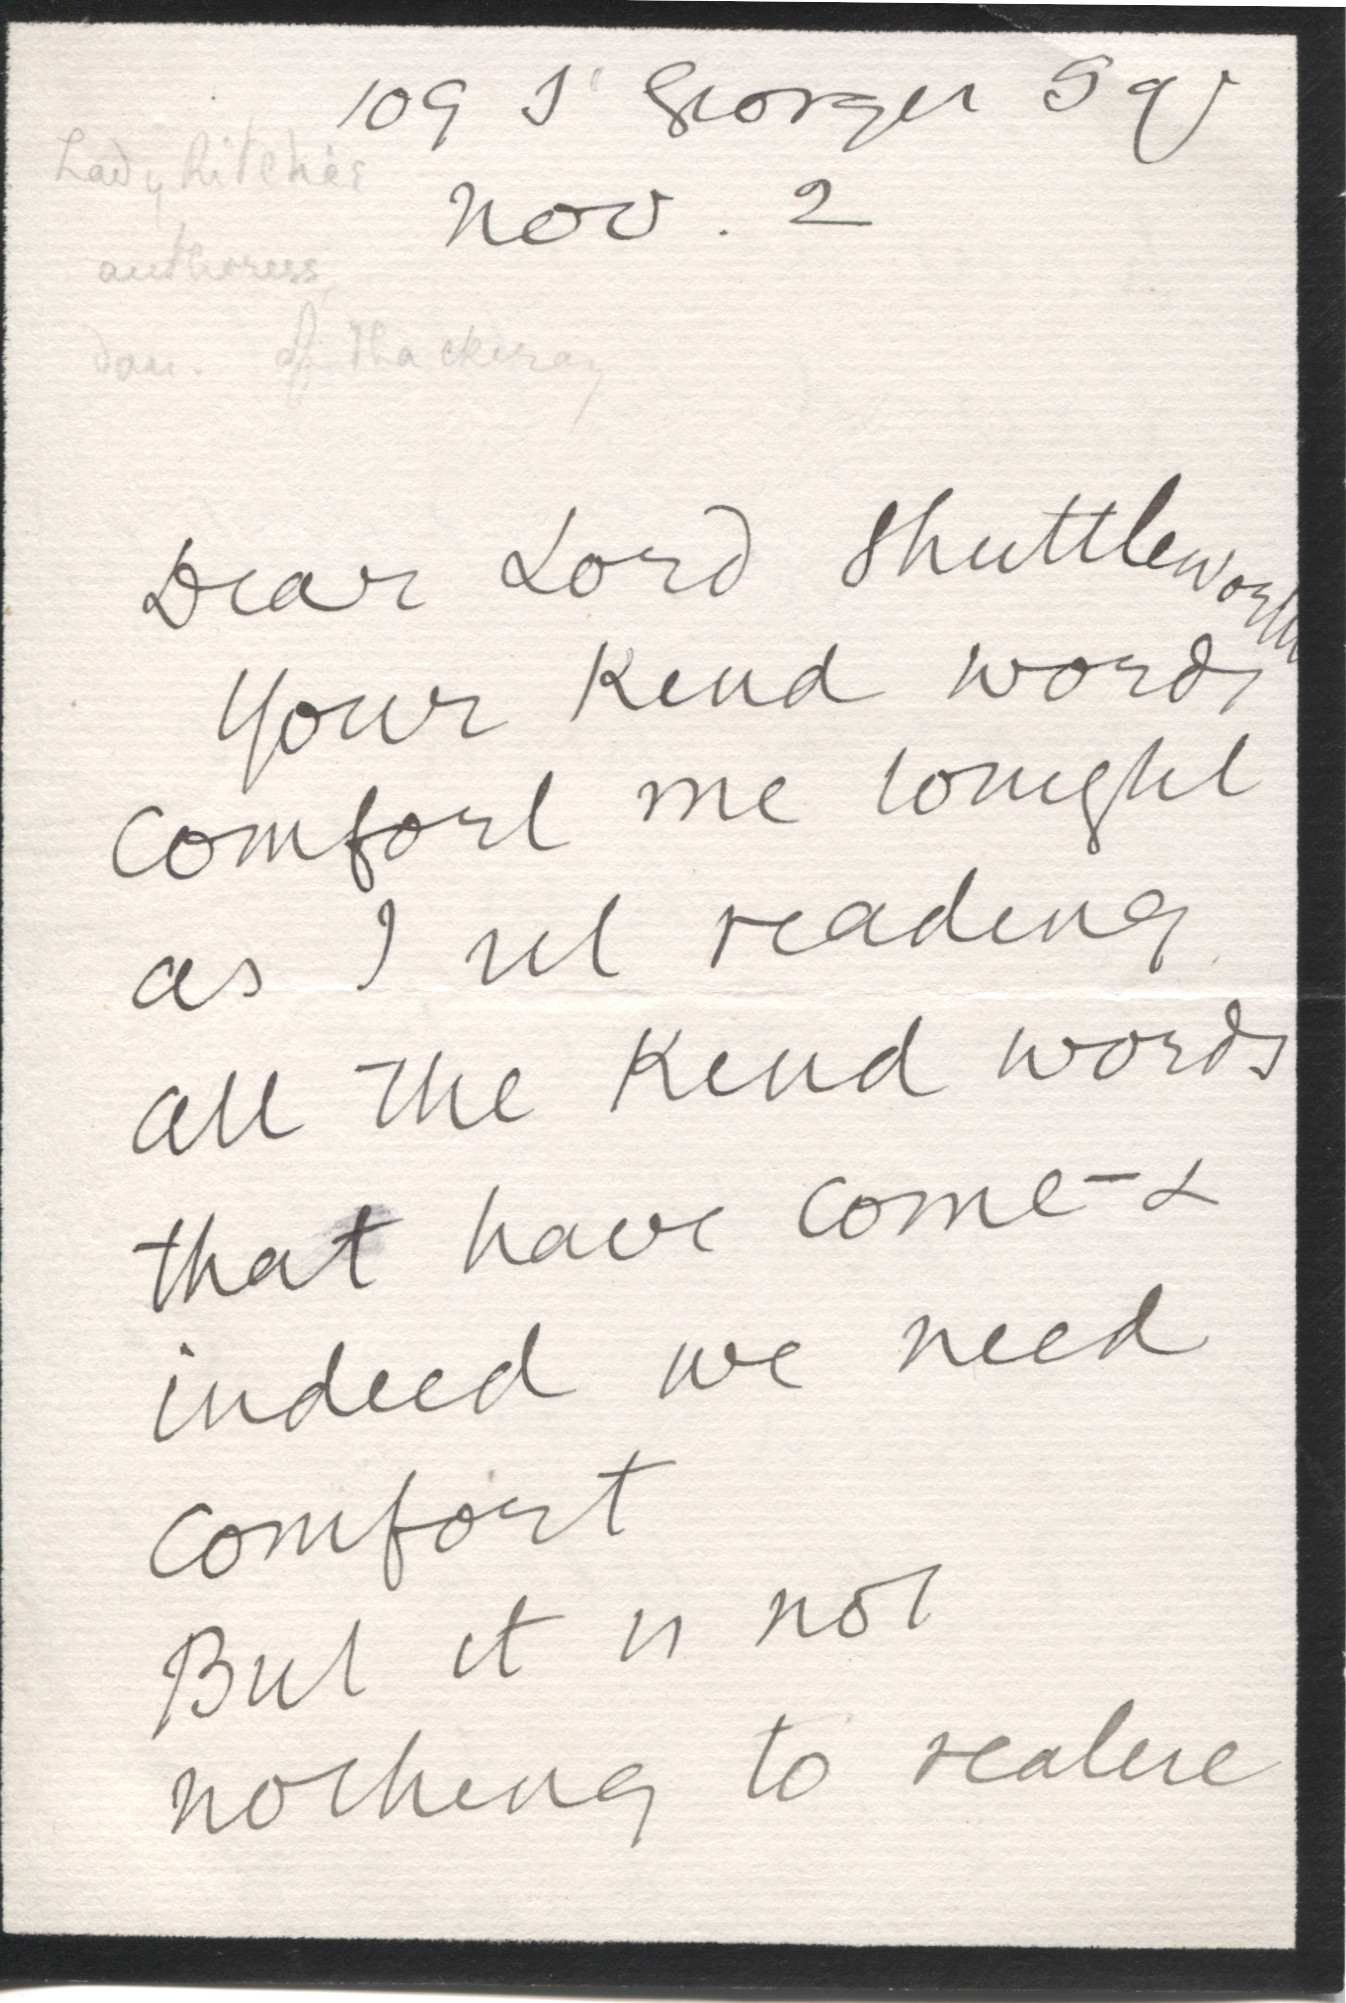 109 St Georges Sqr
Nov. 2
Lady Ritchie
authoress
dau. of Thackeray
Dear Lord Shuttleworth
Your kind words
comfort me tonight
as I sit reading
all the kind words
that have come - &
indeed we need
comfort
But it is not
nothing to realise